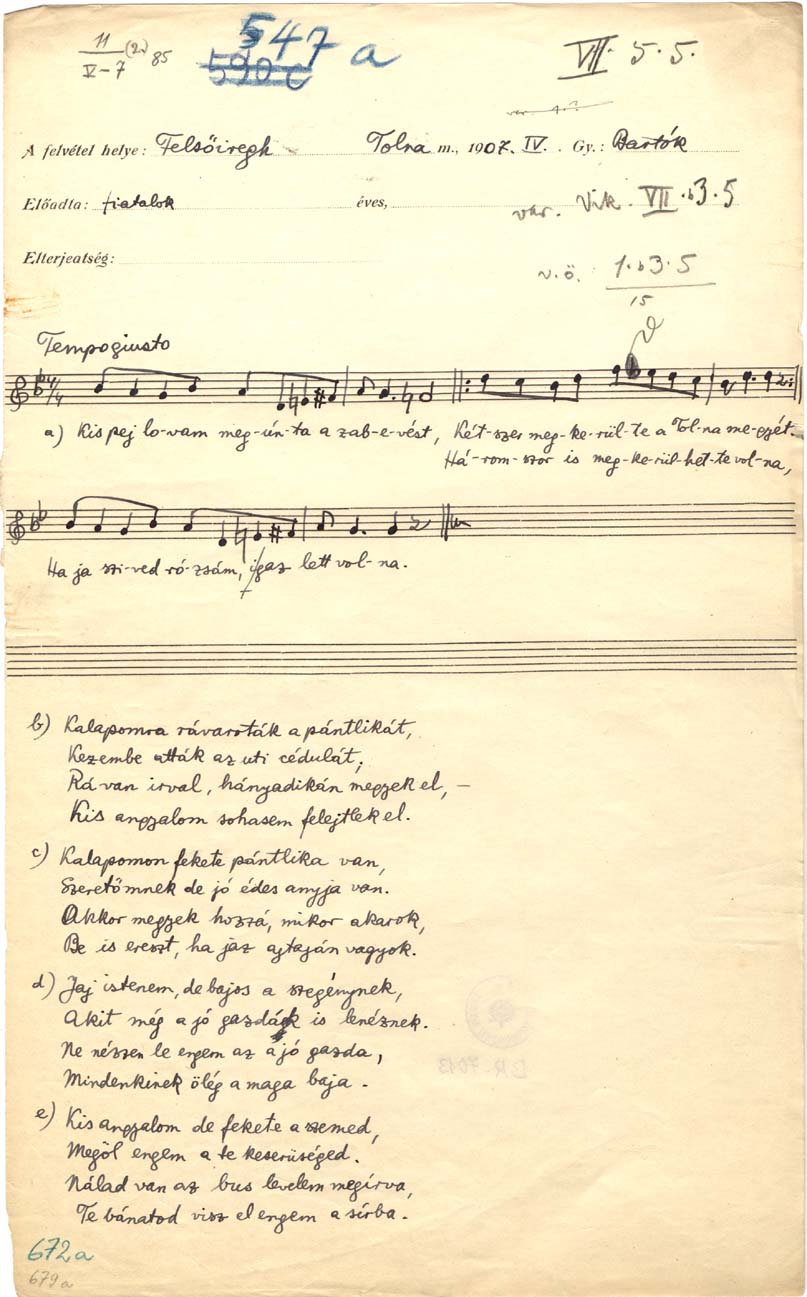 11 (2.) 85
V-7
547 a
590 c
VII. 5. 5.
A felvétel helye: Felsőiregh Tolna m., 1907. IV. Gy.: Bartók
Előadta: fiatalok éves,
var. Vik. VII. b3. 5
Elterjeatség:
v.ö. 1. b3. 5
15
Tempogiusto
a) Kis pej lo-vam meg-ún-ta a zab-e-vést, Két-szer meg-ke-rül-te a Tol-na me-gyét.
Há-rom-szor is meg-ke-rül-het-te vol-na,
Ha ja szi-ved ró-zsám, igaz lett vol-na.
b) Kalapomra rávarották a pántlikát,
Kezembe atták az uti cédulát;
Rá van irval, hányadikán megyek el, —
Kis angyalom sohasem felejtlek el.
c) Kalapomon fekete pántlika van,
Szeretőmnek de jó édes anyja van.
Akkor megyek hozzá, mikor akarok,
Be is ereszt, ha jaz ajtaján vagyok.
d) Jaj istenem, de bajos a szegénynek,
Akit még a jó gazdák is lenéznek.
Ne nézzen le engem az a jó gazda,
Mindenkinek ölég a maga baja.
e) Kis angyalom de fekete a szemed,
Megöl engem a te keserüséged.
Nálad van az bus levelem megírva,
Te bánatod visz el engem a sírba.
672a
679a